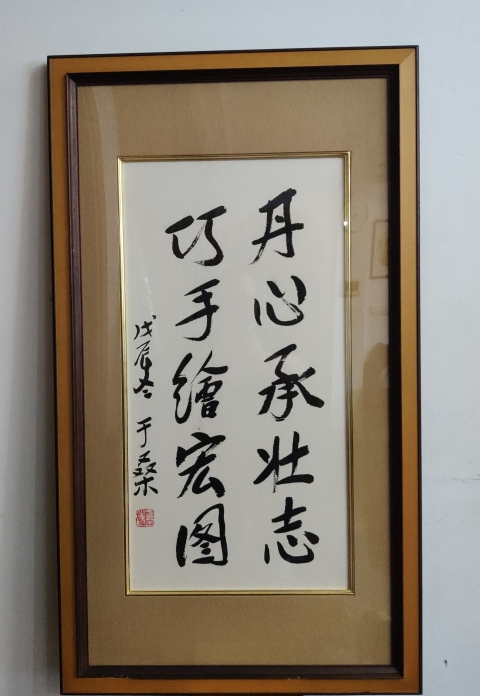 丹心承壮志
巧手繪宏图
戊辰冬 于桑